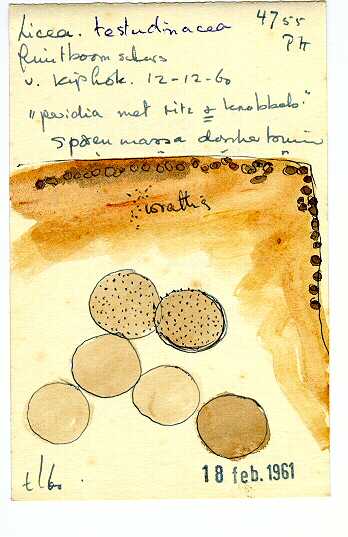 Licea. testudinacea 4755
fruitboom schors Ptt
v. Kiphok. 12-12-60
"peridia met ritz ± knobbels"
sporenmassa donkerbruin
wrattig
t/60
18 feb. 1961